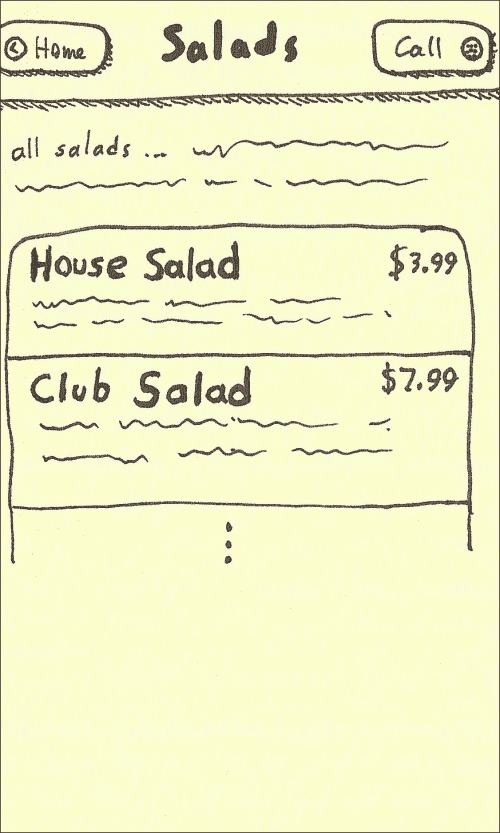 Home Salads Call
all salads ...
House Salad $3.99
Club Salad $7.99